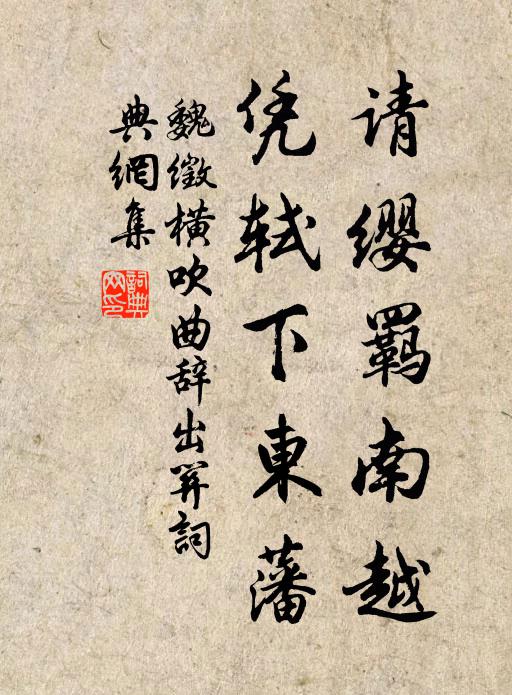 请缨羁南越
凭轼下東藩
魏徵橫吹曲辞出関詞
典網集
詞典网印